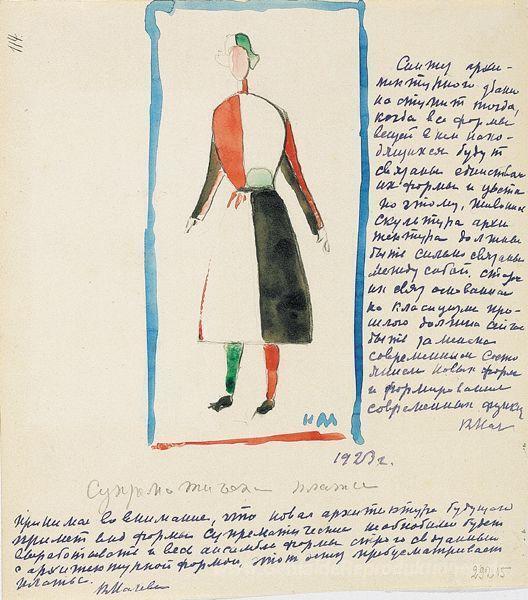 114.
Синтез архи-
тектурного здани
наступит тогда,
когда все формы
вещей в нем нахо-
дящихся будут
связаны единством
их формы и цвета
поэтому, живопись
скульптура архи
тектура должны
быть сильно связаны
между собой,
их связь основанная
на классицизме про-
шлого должна
быть заменена
современным
новых форм
и формированием
современных
К Мал
КМ
1923 г.
Супрематическ платье
Принимая во внимание, что новая архитектура будущего
примет вид формы супрематические необходимо будет
выработать и весь ансамбль формы строго связанный
с архитектурной формой, этот эскиз предусматривает
платье.
К Малевич